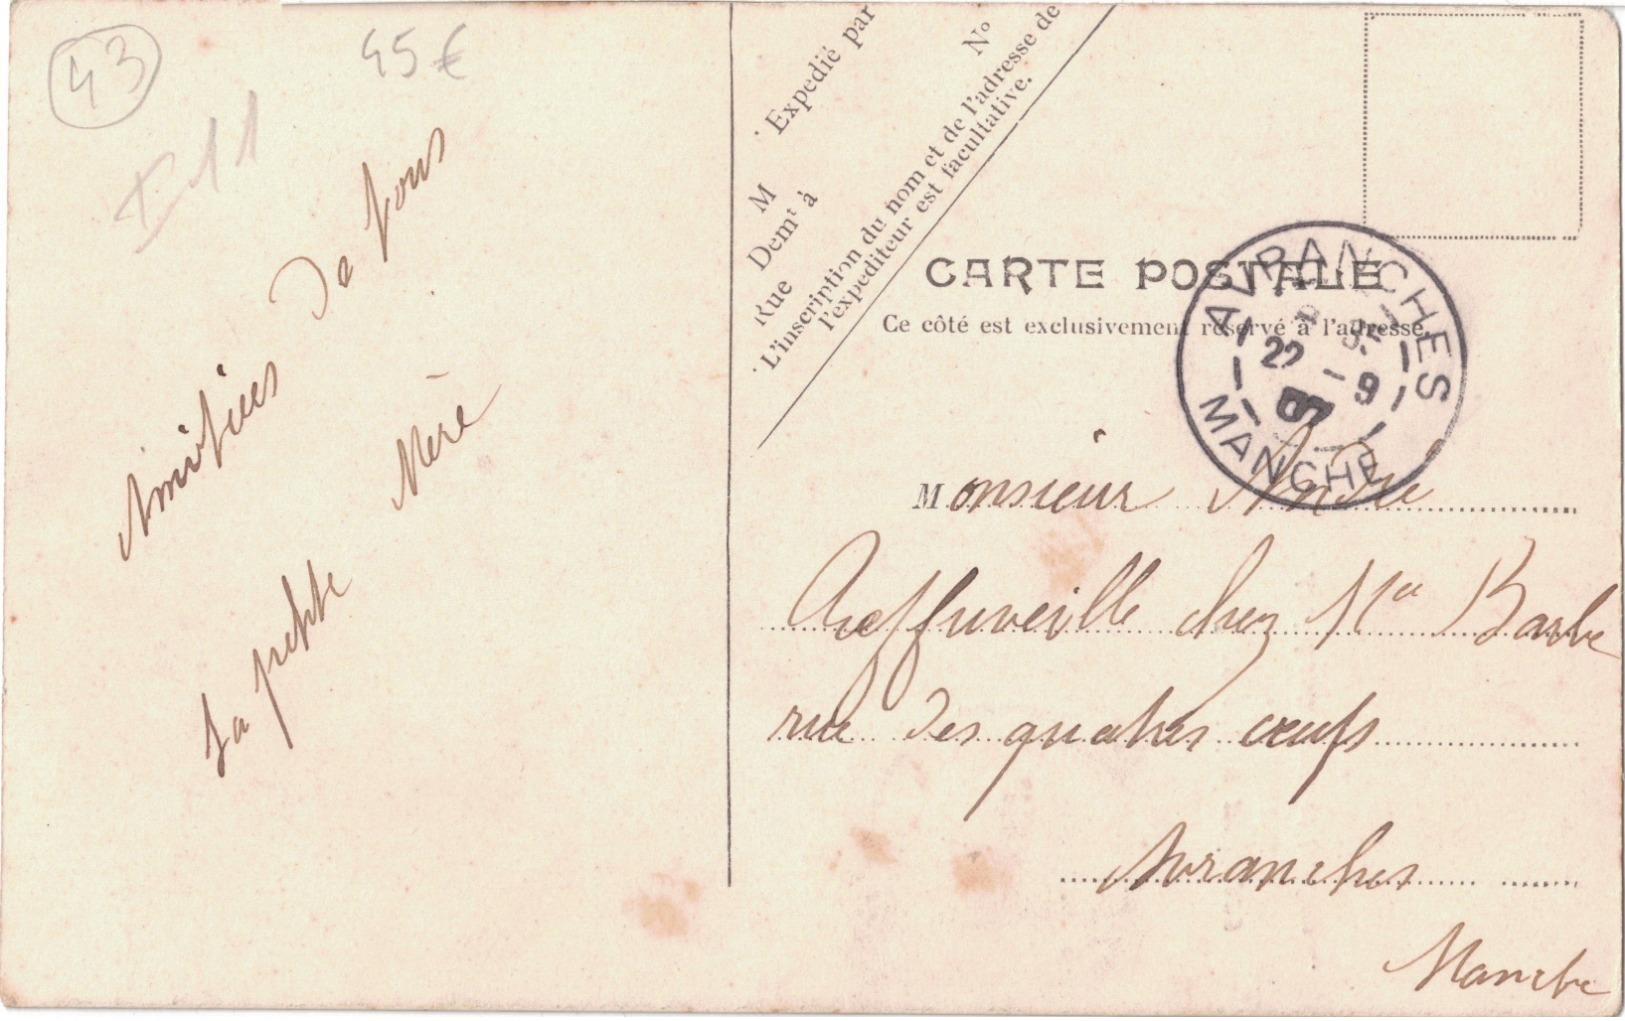 43
45€
Amitiées de tous
La petite Mère
Expedié par
M
Demt à
Rue
No
L'inscription du nom et de l'adresse de
l'expediteur est facultative.
CARTE POSTALE
Ce côté est exclusivement réservé à l'adresse.
AVRANCHES
22 -9
MANCHE
Monsieur André
chez Ma Barbe
rue des quatres œufs
Avranches
Manche